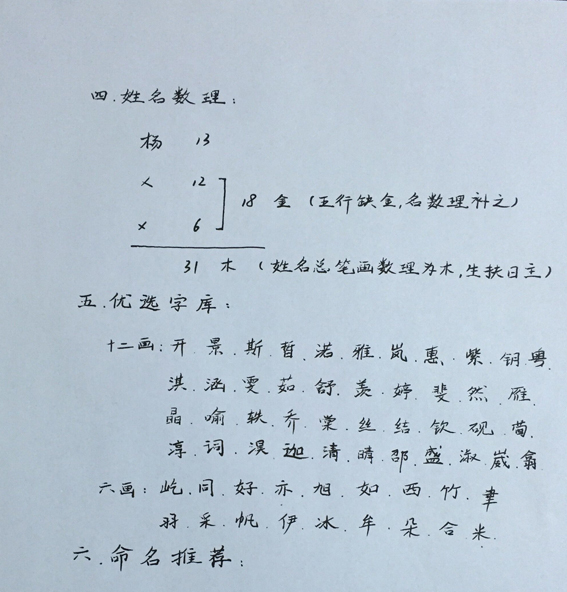 四.姓名数理:
杨 13
× 12
× 6
18 金 (五行缺金,名数理补之)
31 木 (姓名总笔画数理为木,生扶日主)
五.优选字库:
十二画:开.景.斯.晢.诺.雅.岚.惠.紫.钥.粤
淇.涵.雯.茹.舒.羡.婷.斐.然.雁.
晶.喻.轶.乔.棠.丝.结.钦.砚.茵.
淳.词.淏.迦.清.晴.邵.盛.淑.崴.翕
六画:屹.同.好.亦.旭.如.西.竹.聿
羽.采.帆.伊.冰.牟.朵.合.米.
六.命名推荐: